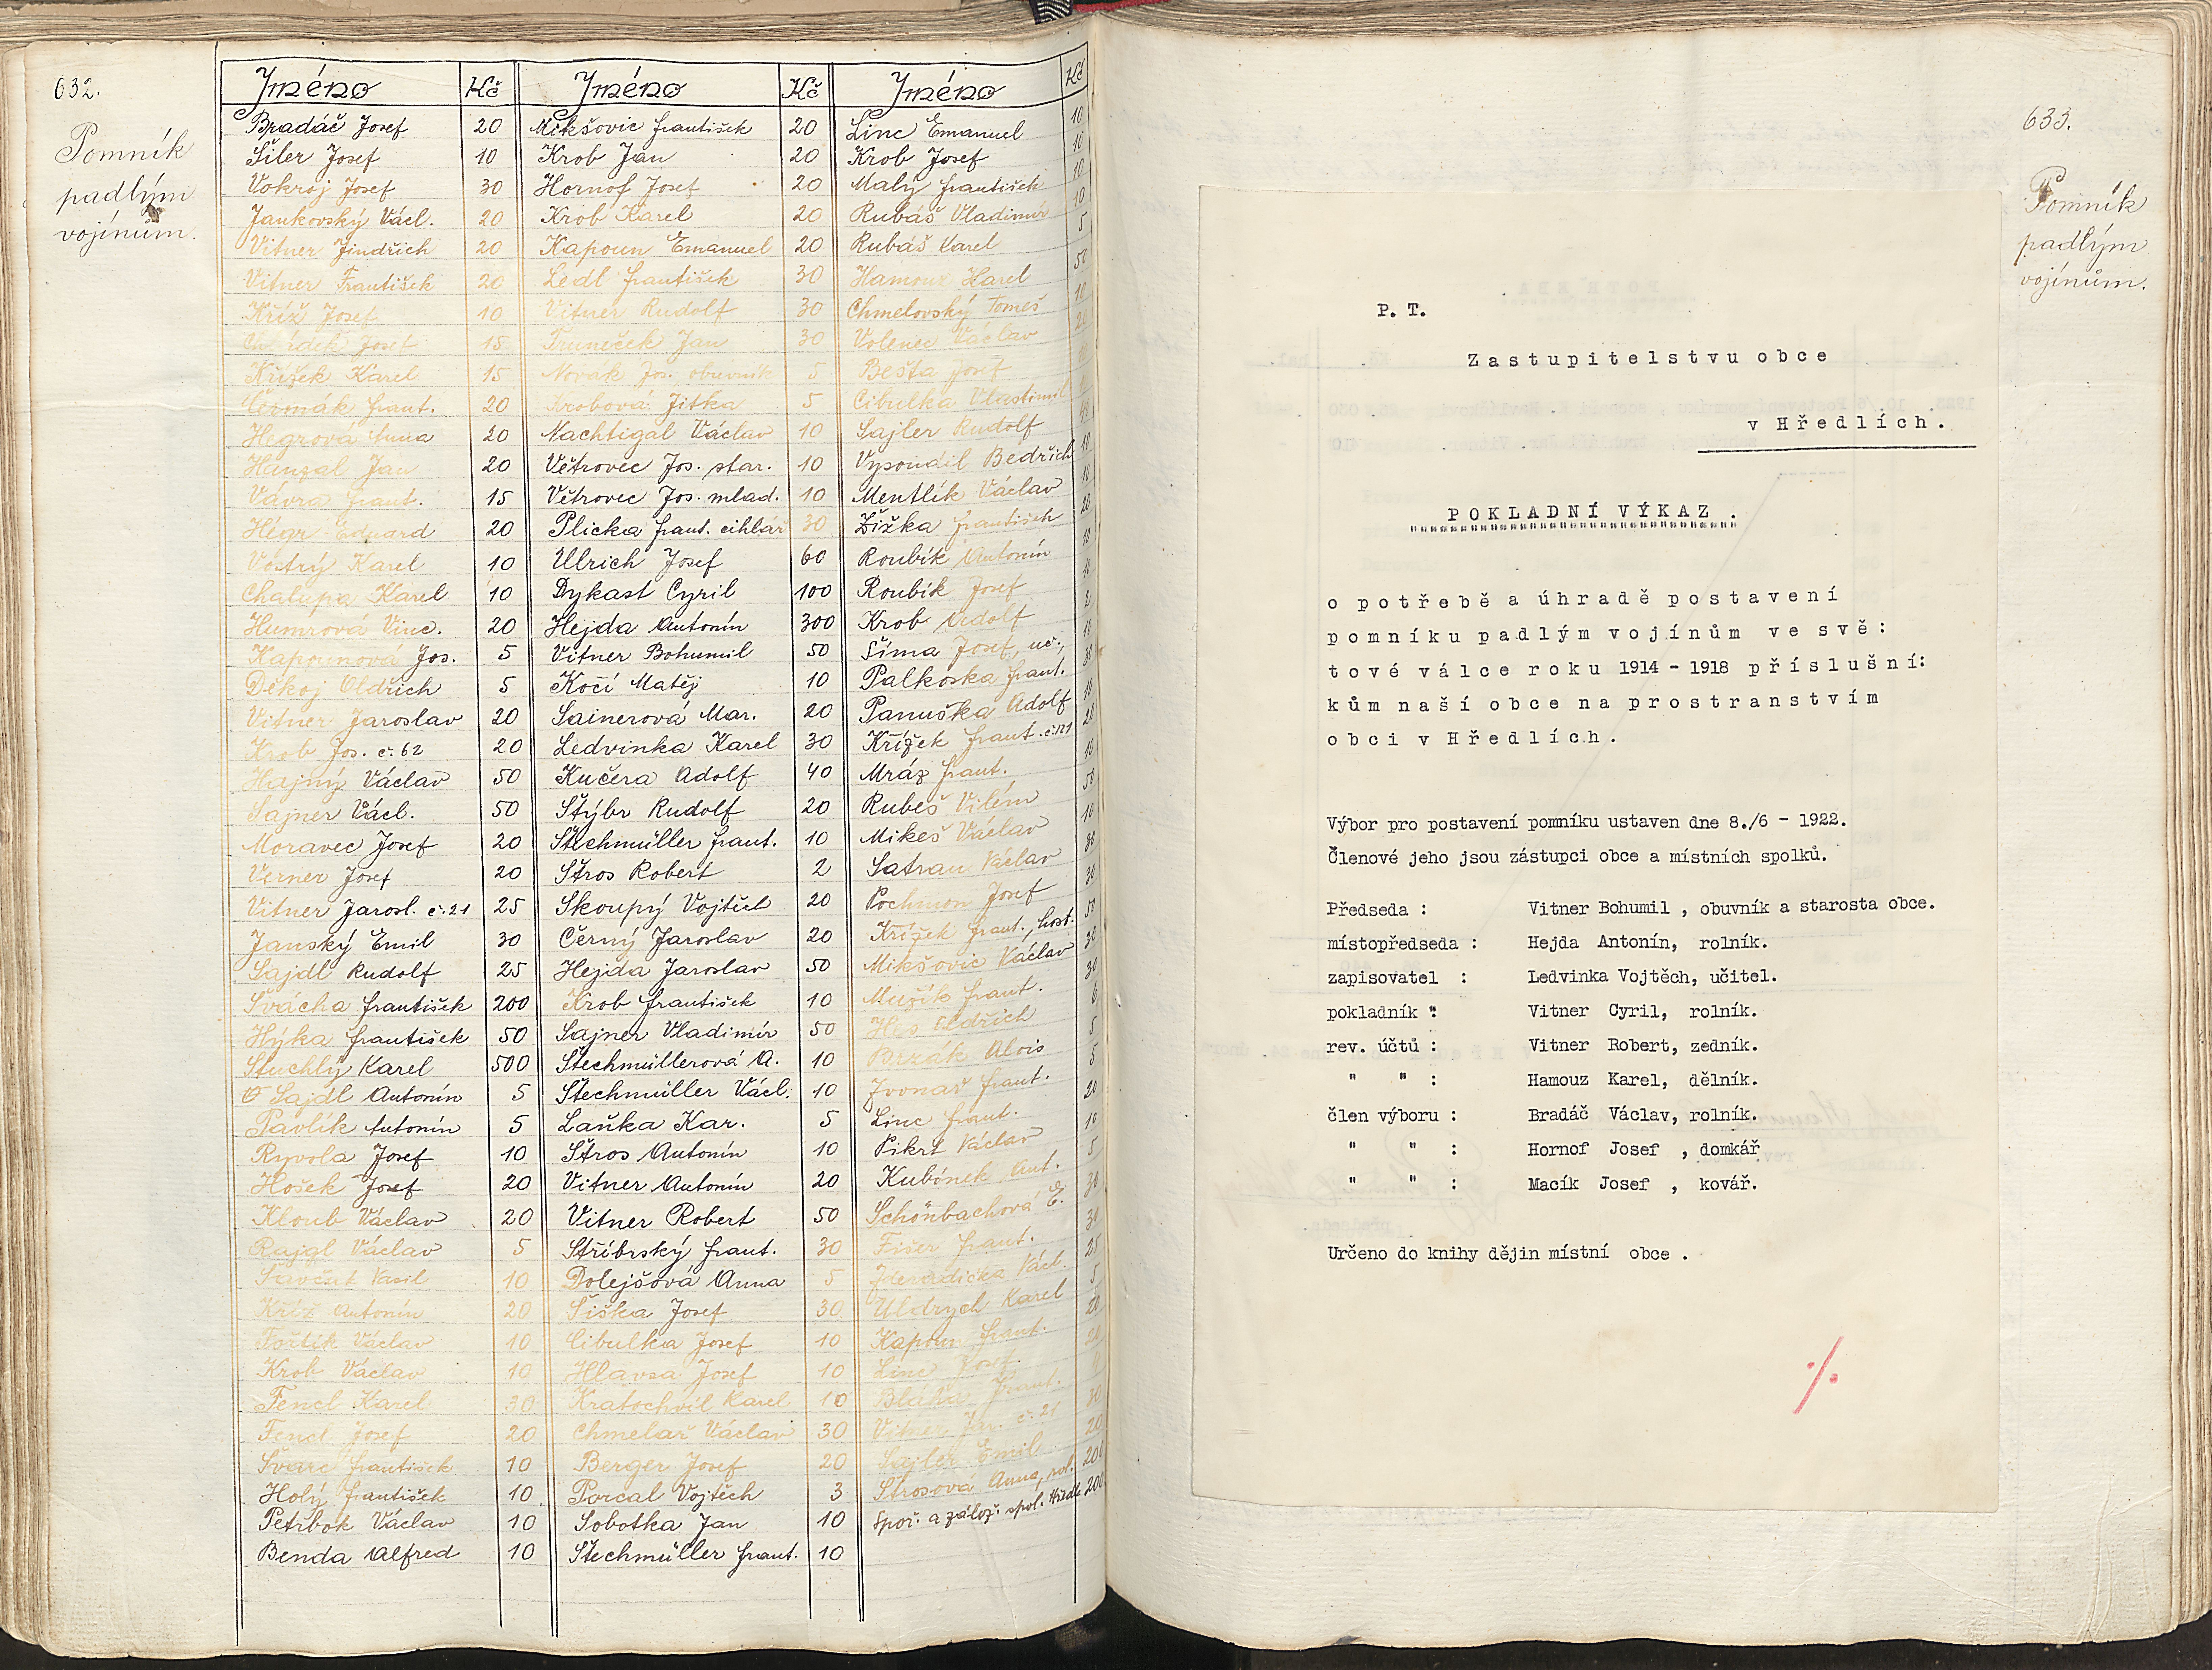 632.
Pomník
padlým
vojínům.
Jméno Kč Jméno Kč Jméno Kč
Bradáč Josef 20 Mikšovic František 20 Linc Emanuel 10
Šiler Josef 10 Krob Jan 20 Krob Josef 10
Vokroj Josef 30 Hornof Josef 20 Malý František 10
Jankovský Václ. 20 Krob Karel 20 Rubáš Vladimír 10
Vitner Jindřich 20 Kapoun Emanuel 20 Rubáš Karel 5
Vitner František 20 Ledl František 30 Hamouz Karel 50
Kříž Josef 10 Vitner Rudolf 30 Chmelovský Tomeš 10
Josef 15 Truneček Jan 30 Volenec Václav 20
Křížek Karel 15 Novák Jos., obuvník 5 Bešta Josef
Čermák Frant. 20 Krobová Jitka 5 Cibulka Vlastimil
Hegrová Anna 20 Nachtigal Václav 10 Sajler Rudolf
Hanzal Jan 20 Větrovec Jos. star. 10 Vysoudil Bedřich 10
Vávra Frant. 15 Větrovec Jos. mlad. 10 Mentlík Václav 10
Hégr Eduard 20 Plicka Frant. cihlář 30 Žižka František 20
Vostrý Karel 10 Ulrich Josef 60 Roubík Antonín 10
Chalupa Karel 10 Dykast Cyril 100 Roubík Josef
Humrová Vinc. 20 Hejda Antonín 300 Krob Adolf 2
Kapounová Jos. 5 Vitner Bohumil 50 Šíma Josef, uč., 10
Děkoj Oldřich 5 Kočí Matěj 10 Palkoska Frant. 30
Vitner Jaroslav 20 Sainerová Mar. 20 Panuška Adolf 10
Krob Jos. č. 62 20 Ledvinka Karel 30 Křížek Frant. č. 121 20
Hajný Václav 50 Kučera Adolf 40 Mráz Frant. 10
Sajner Václ. 50 Štýbr Rudolf 20 Rubeš Vilém 50
Moravec Josef 20 Štechmüller Frant. 10 Mikeš Václav 10
Verner Josef 20 Štros Robert 2 Satran Václav 30
Vitner Jarosl. č. 21 25 Skoupý Vojtěch 20 Pochmon Josef 30
Janský Emil 30 Černý Jaroslav 20 Křížek Frant., host. 50
Sajdl Rudolf 25 Hejda Jaroslav 50 Mikšovic Václav 30
Švácha František 200 Krob František 10 Mužík Frant. 30
Hýka František 50 Sajner Vladimír 50 Oldřich 6
Stuchlý Karel 500 Štechmüllerová A. 10 Brzák Alois 5
Sajdl Antonín 5 Štechmüller Václ. 10 Zvonař Frant. 5
Pavlík Antonín 5 Laňka Kar. 5 Linc Frant. 20
Ryvola Josef 10 Štros Antonín 10 Pikrt Václav 10
Hošek Josef 20 Vitner Antonín 20 Kubónek Ant. 5
Kloub Václav 20 Vitner Robert 50 Schönbachová E. 30
Rajgl Václav 5 Stříbrský Frant. 30 Fišer Frant. 30
Vasil 10 Dolejšová Anna 5 Zderadička Václ. 25
Kříž Antonín 20 Šiška Josef 30 Uldrych Karel 5
Foltík Václav 10 Cibulka Josef 10 Kapoun Frant. 20
Krob Václav 10 Hlavsa Josef 10 Linc Josef 20
Fencl Karel 30 Kratochvíl Karel 10 Frant.
Fencl Josef 20 Chmelař Václav 30 Vitner Jar. č. 21 30
Švarc František 10 Berger Josef 20 Sajler Emil 20
Holý František 10 Porcal Vojtěch 3 Štrosová Anna, rol. 200
Petrbok Václav 10 Sobotka Jan 10 Spoř. a zálož. spol. Hředle 200
Benda Alfred 10 Štechmüller Frant. 10
633.
Pomník
padlým
vojínům.
P. T.
Zastupitelstvu obce
v Hředlích.
POKLADNÍ VÝKAZ .
o potřebě a úhradě postavení
pomníku padlým vojínům ve svě:
tové válce roku 1914 - 1918 příslušní:
kům naší obce na prostranstvím
obci v Hředlích.
Výbor pro postavení pomníku ustaven dne 8./6 - 1922.
Členové jeho jsou zástupci obce a místních spolků.
Předseda : Vitner Bohumil , obuvník a starosta obce.
místopředseda : Hejda Antonín, rolník.
zapisovatel : Ledvinka Vojtěch, učitel.
pokladník : Vitner Cyril, rolník.
rev. účtů : Vitner Robert, zedník.
" " : Hamouz Karel, dělník.
člen výboru : Bradáč Václav, rolník.
" " : Hornof Josef , domkář
" " : Macík Josef , kovář.
Určeno do knihy dějin místní obce .
./.